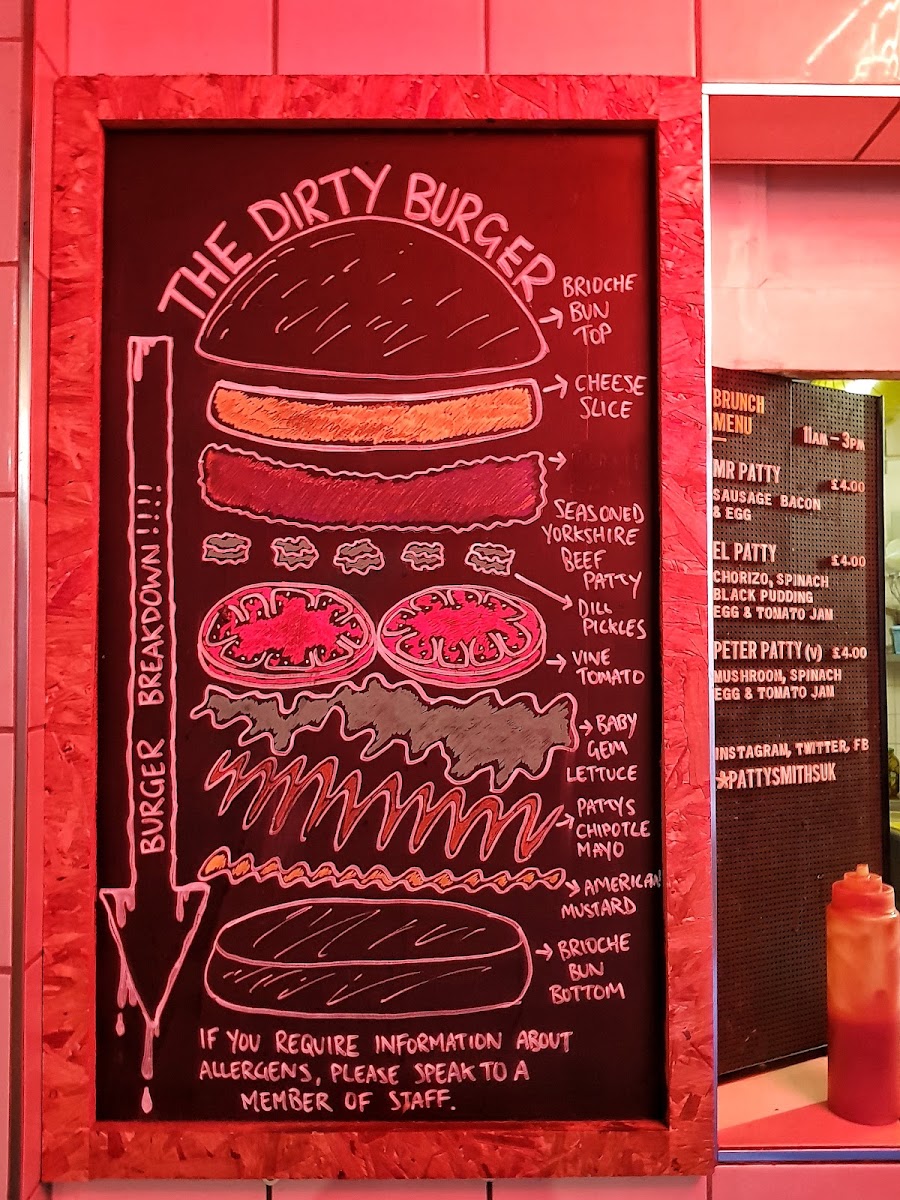 THE DIRTY BURGER
BRIOCHE
BUN
TOP
CHEESE
SLICE
SEASONED
YORKSHIRE
BEEF
PATTY
DILL
PICKLES
VINE
TOMATO
BABY
GEM
LETTUCE
PATTYS
CHIPOTLE
MAYO
AMERICAN
MUSTARD
BRIOCHE
BUN
BOTTOM
BURGER BREAKDOWN!!!!
IF YOU REQUIRE INFORMATION ABOUT
ALLERGENS, PLEASE SPEAK TO A
MEMBER OF STAFF.
BRUNCH
MENU
11AM - 3PM
MR PATTY £4.00
SAUSAGE BACON
& EGG
EL PATTY £4.00
CHORIZO, SPINACH
BLACK PUDDING
EGG & TOMATO JAM
PETER PATTY (V) £4.00
MUSHROOM, SPINACH
EGG & TOMATO JAM
INSTAGRAM, TWITTER, FB
PATTYSMITHSUK